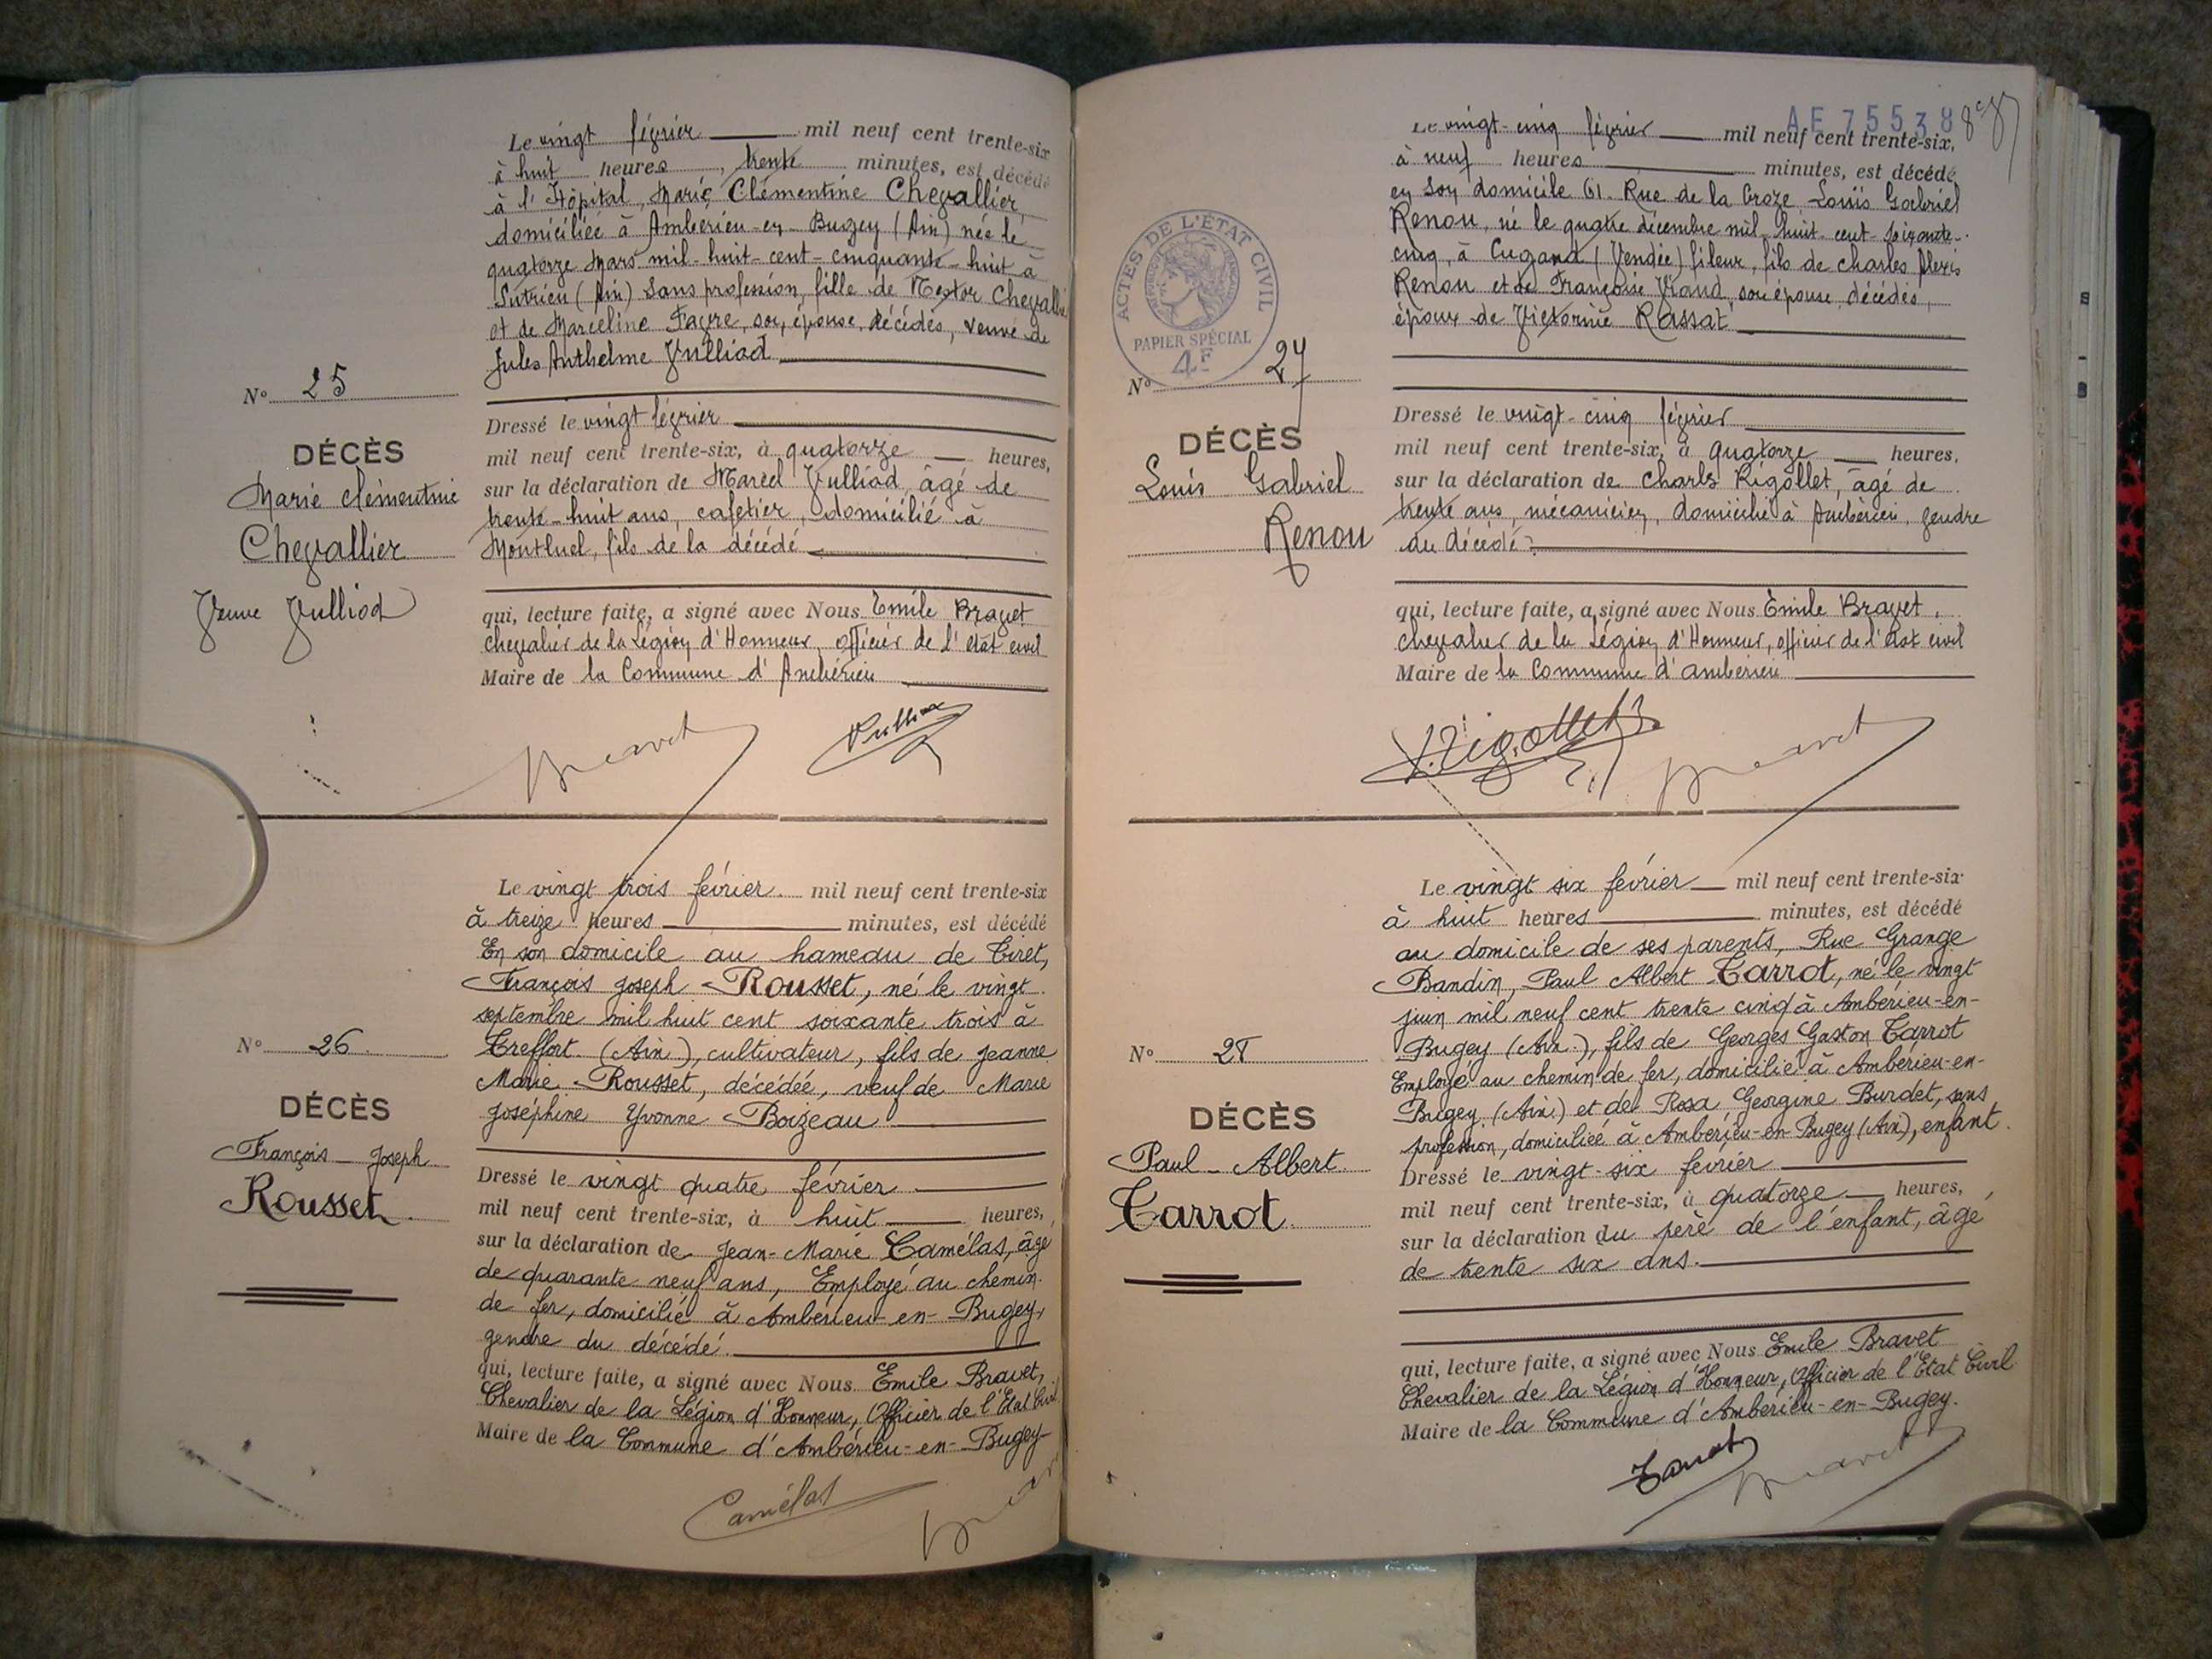 Le vingt février mil neuf cent trente-six
à huit heures, trente minutes, est décédé
à l'Hôpital, Marie Clémentine Chevallier,
domiciliée à Ambérieu-en-Bugey (Ain) née le
quatorze Mars mil-huit-cent-cinquante-huit à
Sutrieu (Ain) sans profession, fille de Nestor Chevallier
et de Marceline Favre, son épouse, décédés, veuve de
Jules Anthelme Vulliod
N° 25
DÉCÈS
Marie Clémentine
Chevallier
Veuve Vulliod
Dressé le vingt février
mil neuf cent trente-six, à quatorze heures,
sur la déclaration de Marcel Vulliod, âgé de
trente-huit ans, cafetier, domicilié à
Montluel, fils de la décédé
qui, lecture faite, a signé avec Nous Emile Bravet
chevalier de la Légion d'Honneur, officier de l'état civil
Maire de la Commune d'Ambérieu
Bravet
Vulliod
Le vingt trois février mil neuf cent trente-six
à treize heures minutes, est décédé
En son domicile au hameau de Tiret,
François Joseph Rousset, né le vingt
septembre mil huit cent soixante trois à
Treffort (Ain), cultivateur, fils de Jeanne
Marie Rousset, décédée, veuf de Marie
Joséphine Yvonne Boizeau
N° 26
DÉCÈS
François Joseph
Rousset
Dressé le vingt quatre février
mil neuf cent trente-six, à huit heures,
sur la déclaration de Jean-Marie Camélas, âgé
de quarante neuf ans, Employé au chemin
de fer, domicilié à Ambérieu-en-Bugey,
gendre du décédé.
qui, lecture faite, a signé avec Nous Emile Bravet,
Chevalier de la Légion d'Honneur, Officier de l'Etat Civil
Maire de la Commune d'Ambérieu-en-Bugey
Camélas
Bravet
AE 75538
Le vingt-cinq février mil neuf cent trente-six,
à neuf heures minutes, est décédé
en son domicile 61. Rue de la Croze Louis Gabriel
Renou, né le quatre décembre mil-huit-cent-soixante-
cinq, à Cugand (Vendée) fileur, fils de Charles Alexis
Renou et de Françoise Viaud, son épouse, décédés,
époux de Victorine Rassat
ACTES DE L'ÉTAT CIVIL
PAPIER SPÉCIAL
4F
N° 27
DÉCÈS
Louis Gabriel
Renou
Dressé le vingt-cinq février
mil neuf cent trente-six, à quatorze heures,
sur la déclaration de Charles Rigollet, âgé de
trente ans, mécanicien, domicilié à Ambérieu, gendre
du décédé
qui, lecture faite, a signé avec Nous Emile Bravet,
chevalier de la Légion d'Honneur, officier de l'état civil
Maire de la Commune d'Ambérieu
Rigollet
Bravet
Le vingt six février mil neuf cent trente-six
à huit heures minutes, est décédé
au domicile de ses parents, Rue Grange
Bandin, Paul Albert Carrot, né le vingt
juin mil neuf cent trente cinq à Ambérieu-en-
Bugey (Ain), fils de Georges Gaston Carrot
Employé au chemin de fer, domicilié à Ambérieu-en-
Bugey (Ain) et de Rosa Georgine Burdet, sans
profession, domiciliée à Ambérieu-en-Bugey (Ain), enfant.
N° 28
DÉCÈS
Paul-Albert
Carrot
Dressé le vingt-six février
mil neuf cent trente-six, à quatorze heures,
sur la déclaration du père de l'enfant, âgé
de trente six ans.
qui, lecture faite, a signé avec Nous Emile Bravet
Chevalier de la Légion d'Honneur, Officier de l'Etat Civil
Maire de la Commune d'Ambérieu-en-Bugey.
Carrot
Bravet